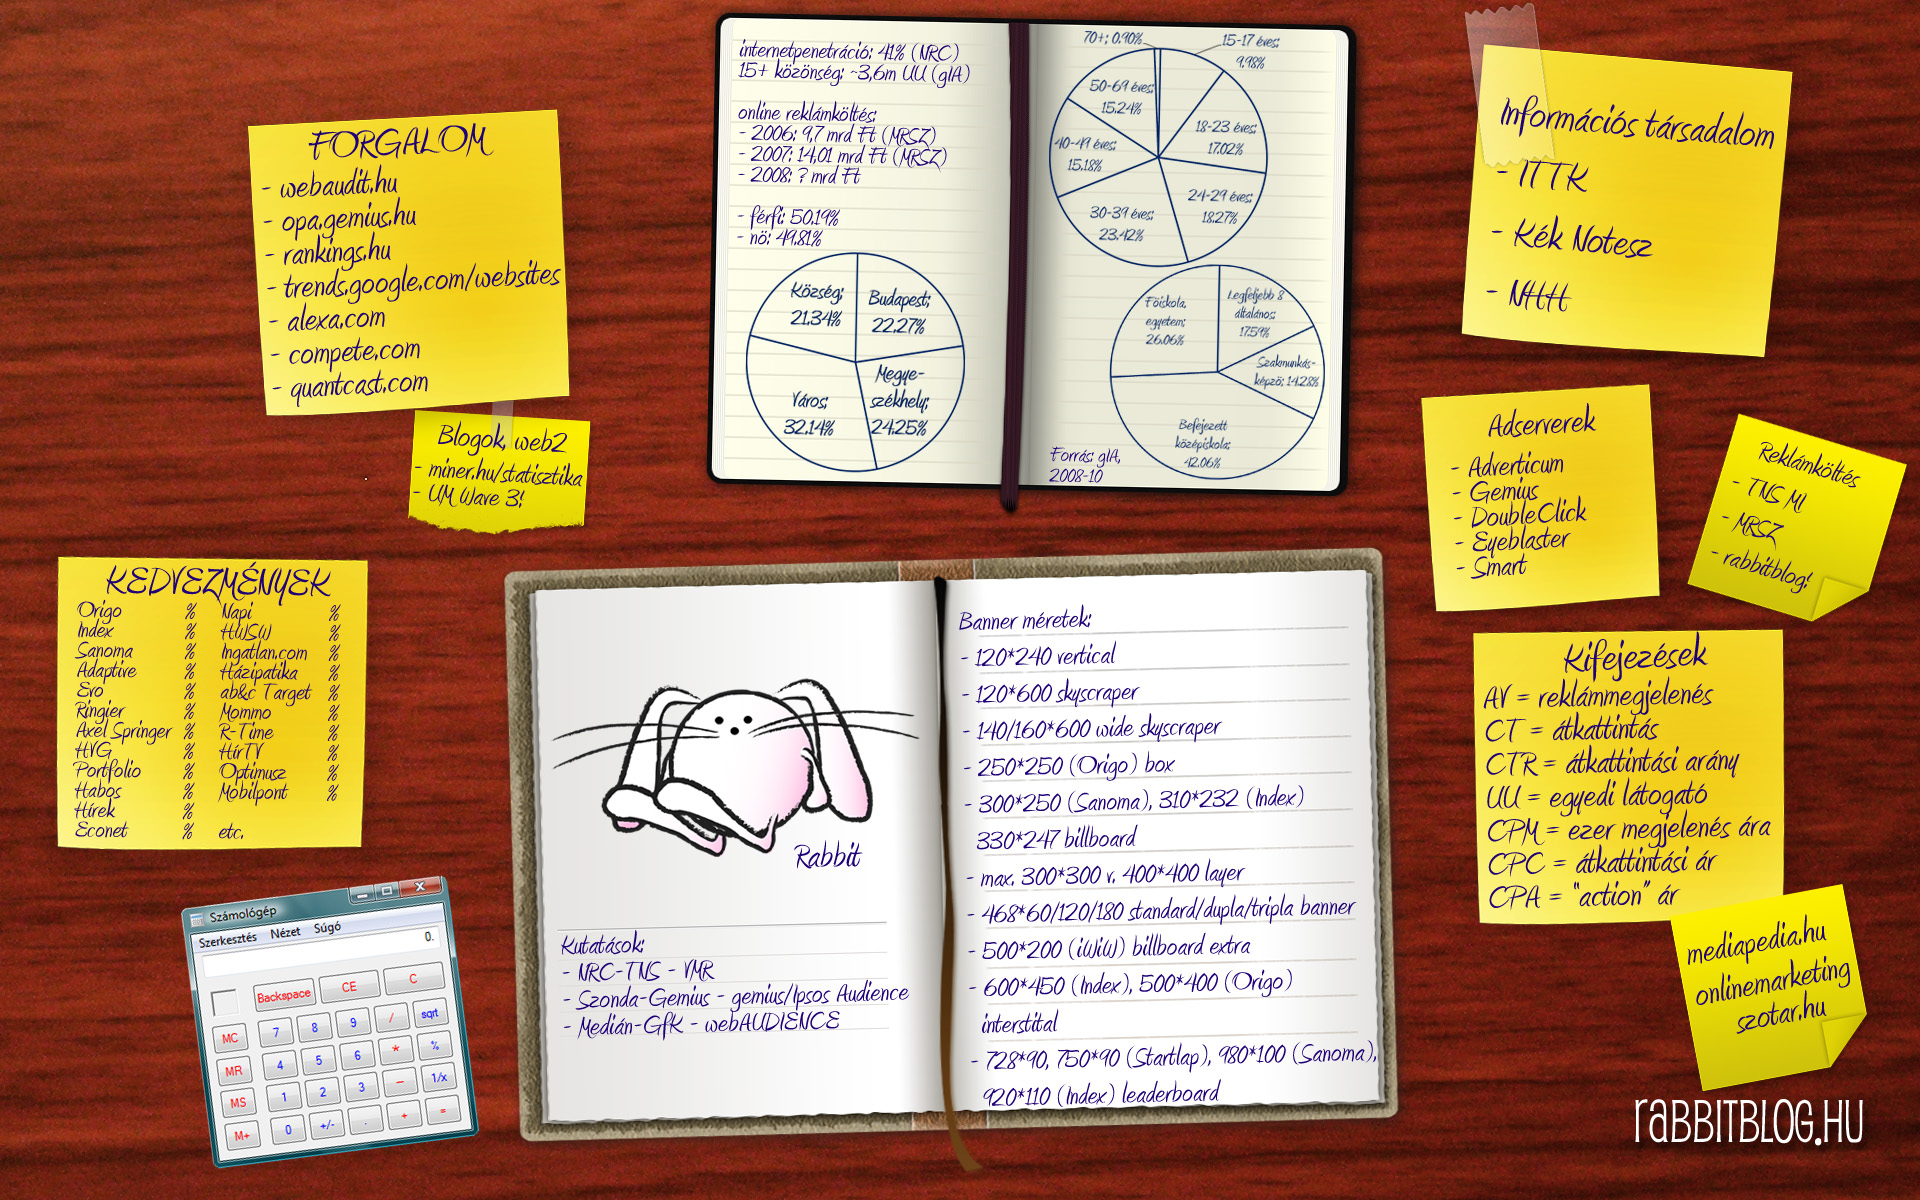 FORGALOM
- webaudit.hu
- opa.gemius.hu
- rankings.hu
- trends.google.com/websites
- alexa.com
- compete.com
- quantcast.com
Blogok, web2
- miner.hu/statisztika
- UM Wave 3!
KEDVEZMÉNYEK
Origo %
Index %
Sanoma %
Adaptive %
Evo %
Ringier %
Axel Springer %
HVG %
Portfolio %
Habos %
Hírek %
Econet %
Napi %
HWSW %
Ingatlan.com %
Házipatika %
ab&c Target %
Mommo %
R-Time %
HírTV %
Optimusz %
Mobilpont %
etc.
Számológép
Szerkesztés Nézet Súgó
0.
Backspace CE C
MC 7 8 9 / sqrt
MR 4 5 6 * %
MS 1 2 3 - 1/x
M+ 0 +/- . + =
internetpenetráció: 41% (NRC)
15+ közönség: ~3,6m UU (gIA)
online reklámköltés:
- 2006: 9,7 mrd Ft (MRSZ)
- 2007: 14,01 mrd Ft (MRSZ)
- 2008: ? mrd Ft
- férfi: 50.19%
- nö: 49.81%
Község;
21.34%
Budapest;
22.27%
Város;
32.14%
Megye-
székhely;
24.25%
70+; 0.90%
15-17 éves;
9.98%
50-69 éves;
15.24%
18-23 éves;
17.02%
40-49 éves;
15.18%
24-29 éves;
18.27%
30-39 éves;
23.42%
Föiskola,
egyetem;
26.06%
Legfeljebb 8
általános;
17.59%
Szakmunkás-
képzö; 14.28%
Befejezett
középiskola;
42.06%
Forrás: gIA,
2008-10
Rabbit
Kutatások:
- NRC-TNS - VMR
- Szonda-Gemius - gemius/Ipsos Audience
- Medián-GfK - webAUDIENCE
Banner méretek:
- 120*240 vertical
- 120*600 skyscraper
- 140/160*600 wide skyscraper
- 250*250 (Origo) box
- 300*250 (Sanoma), 310*232 (Index)
330*247 billboard
- max. 300*300 v. 400*400 layer
- 468*60/120/180 standard/dupla/tripla banner
- 500*200 (iWiW) billboard extra
- 600*450 (Index), 500*400 (Origo)
interstital
- 728*90, 750*90 (Startlap), 980*100 (Sanoma),
920*110 (Index) leaderboard
Információs társadalom
- ITTK
- Kék Notesz
- NHH
Adserverek
- Adverticum
- Gemius
- DoubleClick
- Eyeblaster
- Smart
Reklámköltés
- TNS MI
- MRSZ
- rabbitblog!
Kifejezések
AV = reklámmegjelenés
CT = átkattintás
CTR = átkattintási arány
UU = egyedi látogató
CPM = ezer megjelenés ára
CPC = átkattintási ár
CPA = "action" ár
mediapedia.hu
onlinemarketing
szotar.hu
RABBITBLOG.HU